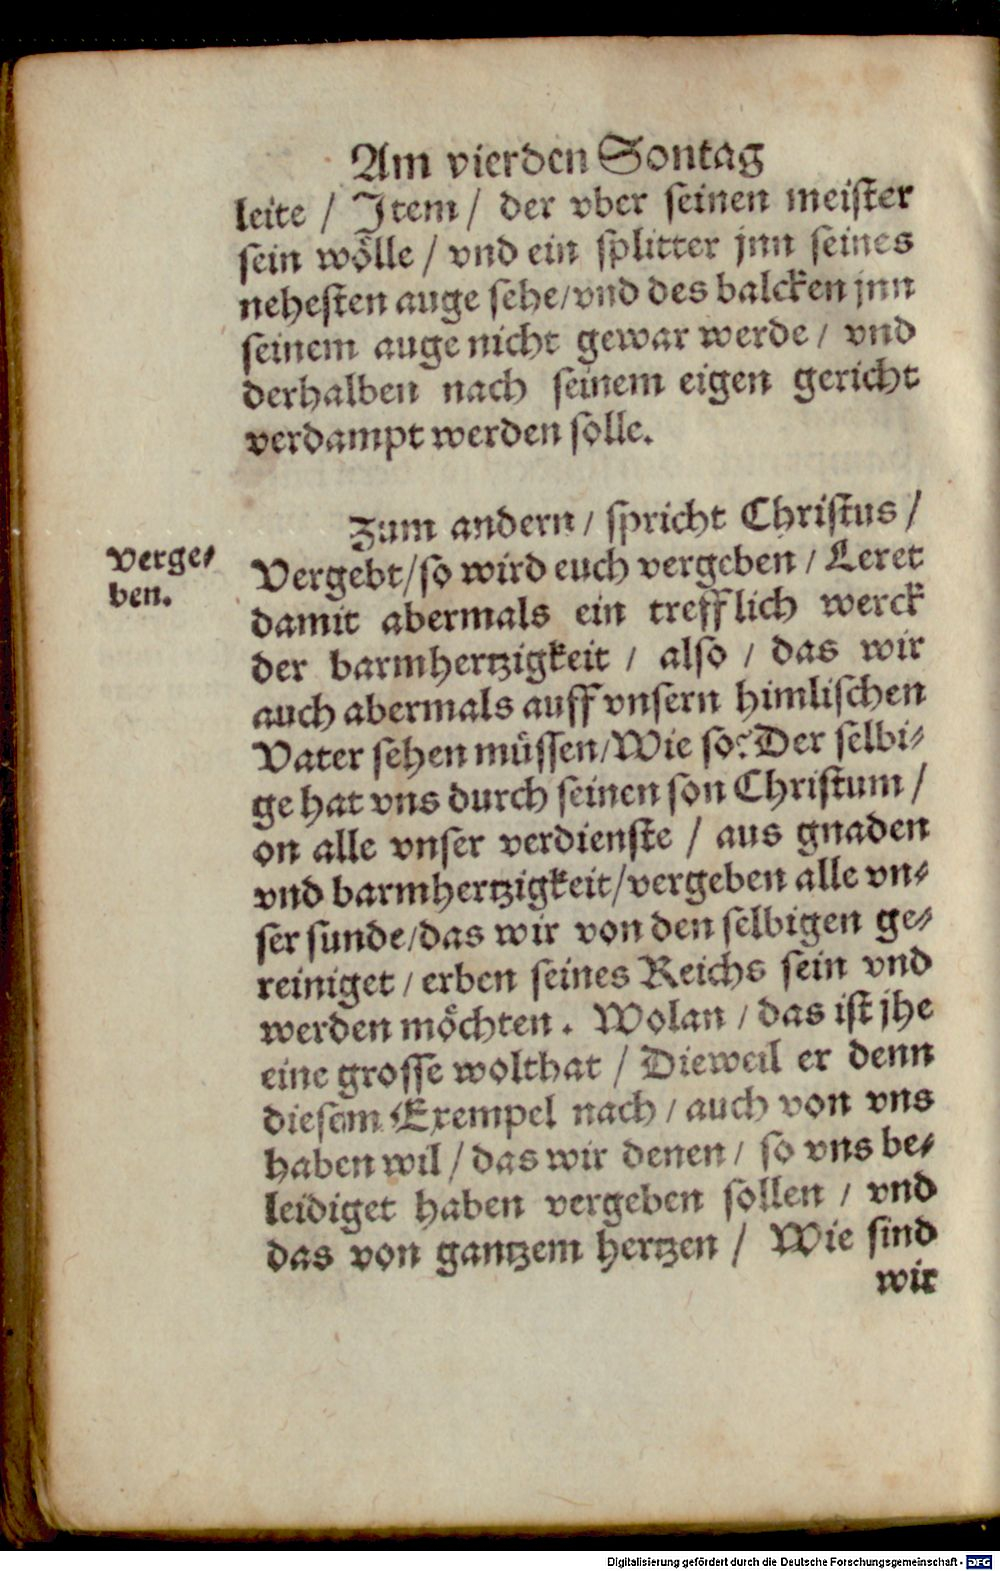 Am vierden Sontag
leite / Jtem / der vber seinen meister
sein wölle / vnd ein splitter jnn seines
nehesten auge sehe/vnd des balcken jnn
seinem auge nicht gewar werde / vnd
derhalben nach seinem eigen gericht
verdampt werden solle.
Zum andern / spricht Christus /
verge-
ben.
Vergebt/so wird euch vergeben / Leret
damit abermals ein trefflich werck
der barmhertzigkeit / also / das wir
auch abermals auff vnsern himlischen
Vater sehen müssen/Wie so? Der selbi-
ge hat vns durch seinen son Christum /
on alle vnser verdienste / aus gnaden
vnd barmhertzigkeit/vergeben alle vn-
ser sunde/das wir von den selbigen ge-
reiniget / erben seines Reichs sein vnd
werden möchten. Wolan / das ist jhe
eine grosse wolthat / Dieweil er denn
diesem Exempel nach / auch von vns
haben wil / das wir denen / so vns be-
leidiget haben vergeben sollen / vnd
das von gantzem hertzen / Wie sind
wir
Digitalisierung gefördert durch die Deutsche Forschungsgemeinschaft - DFG